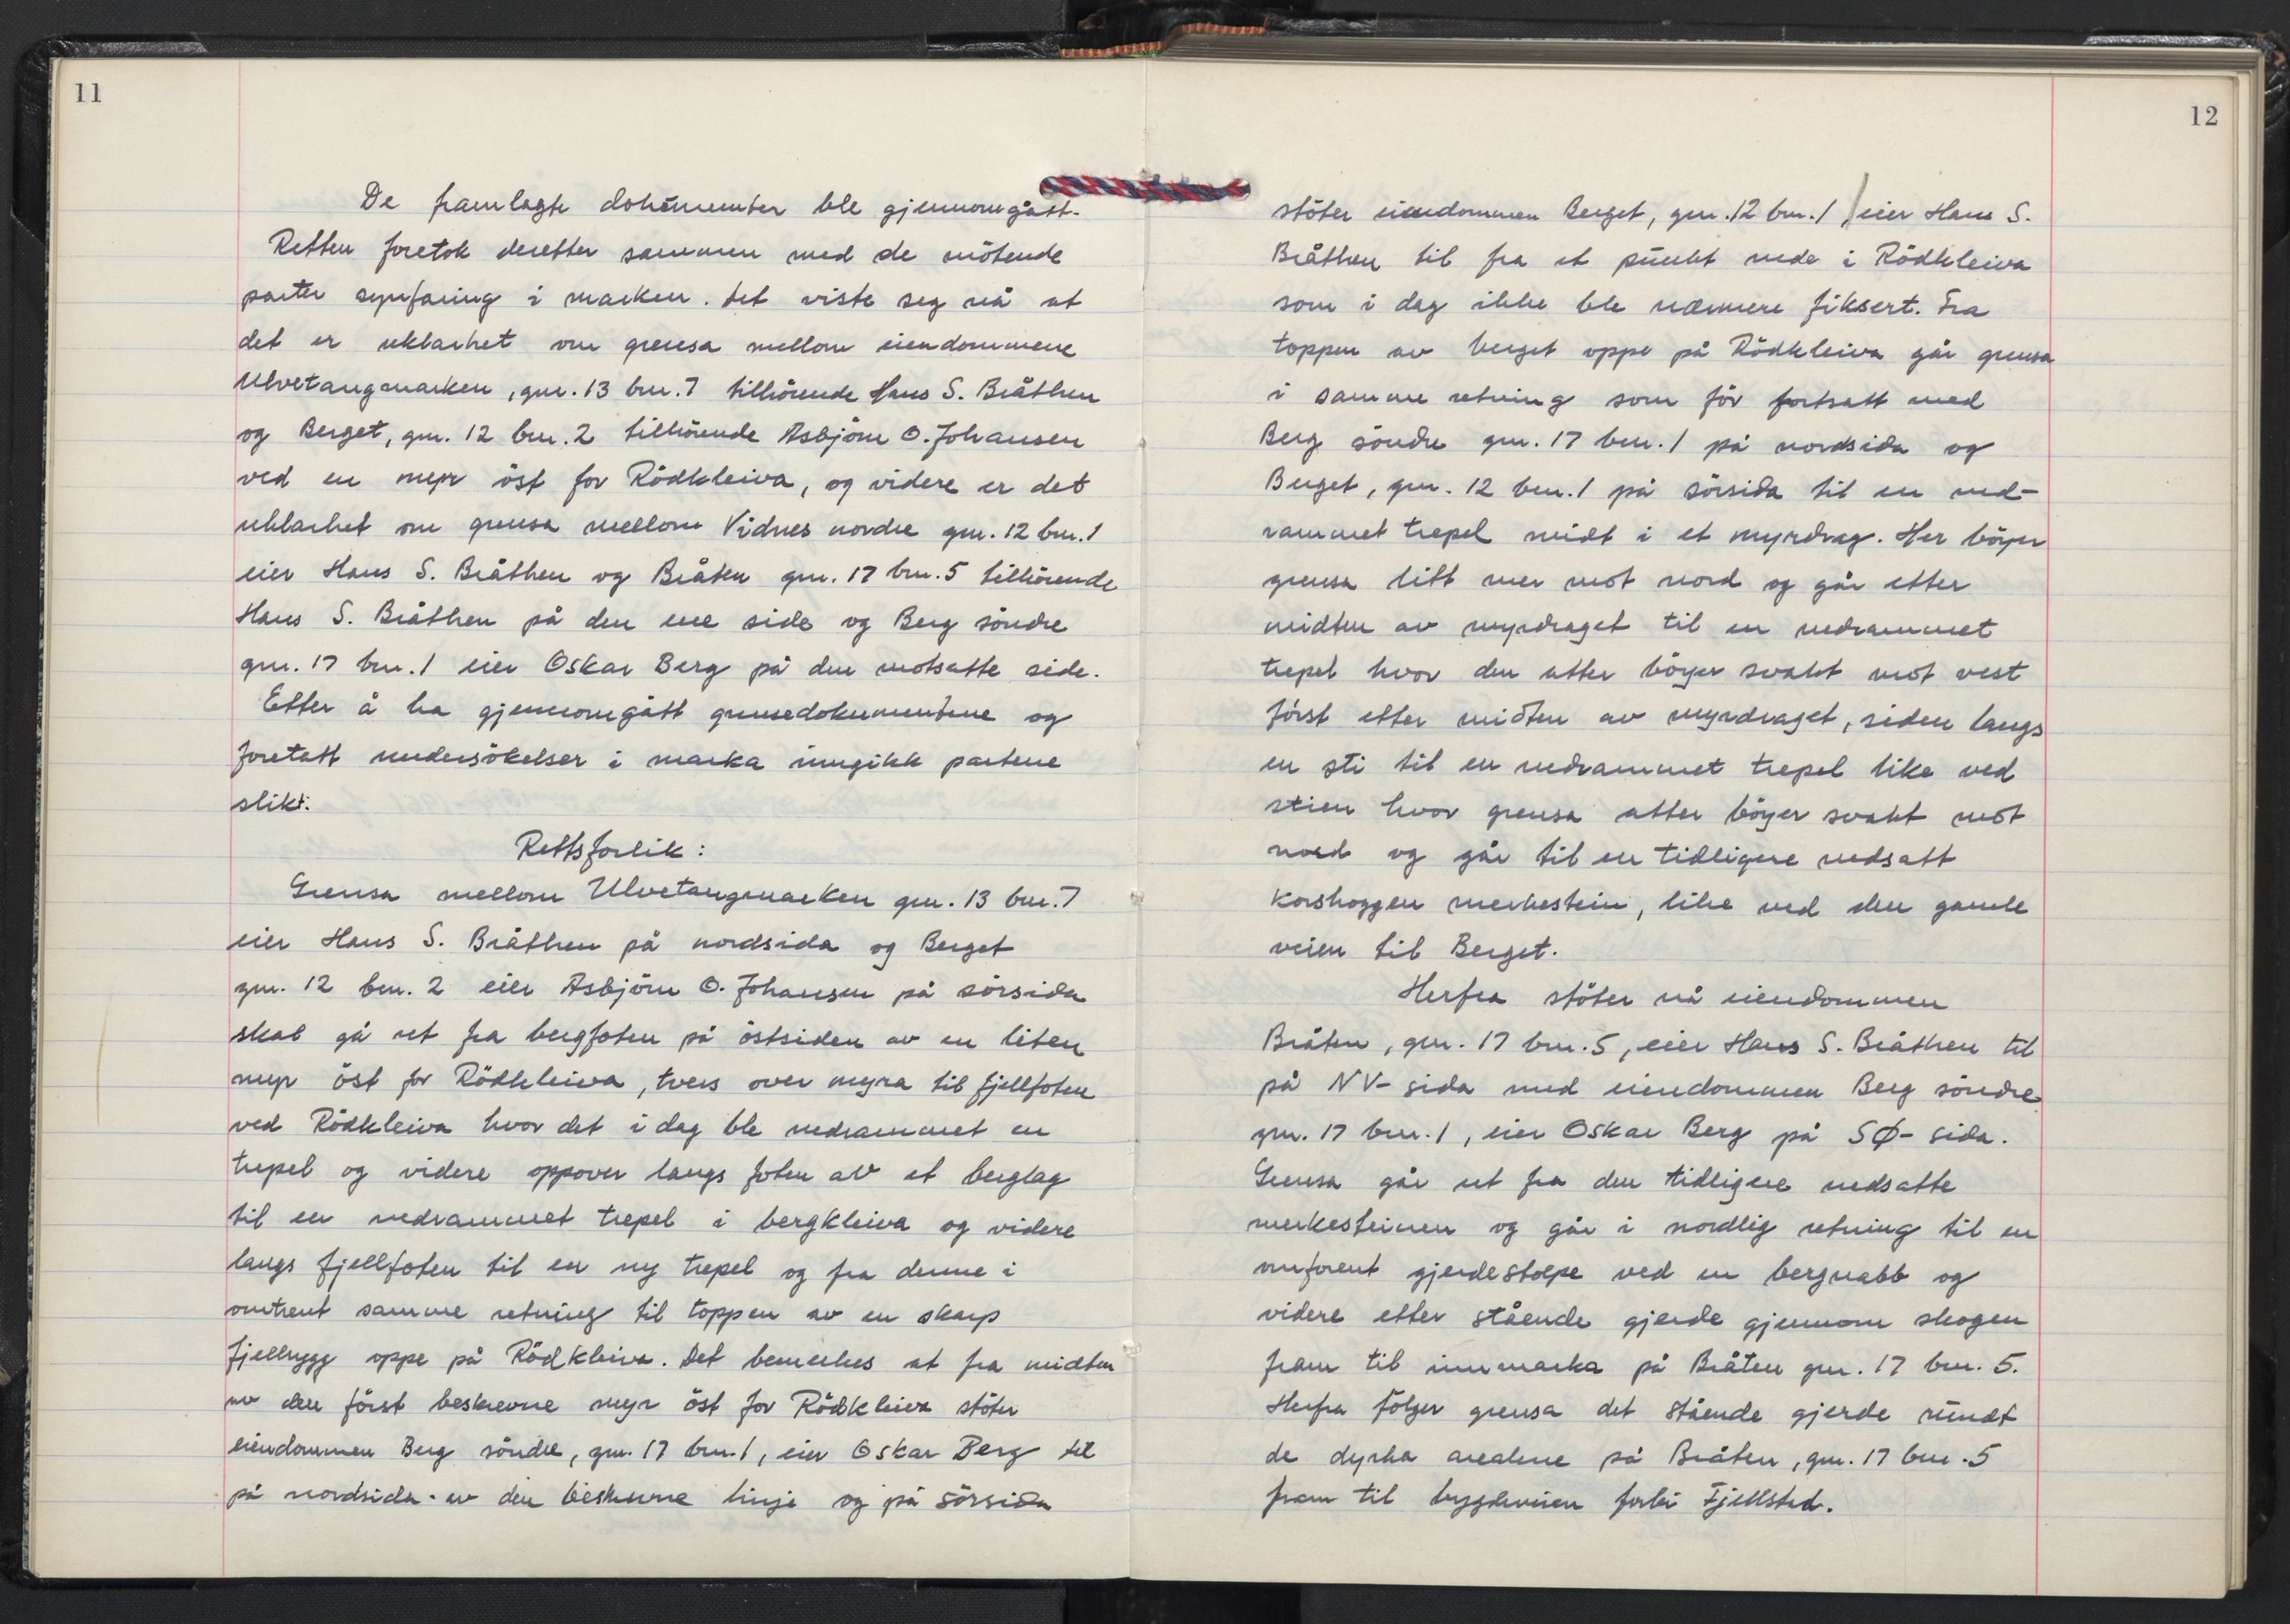 11
De framlagte dokumenter ble gjennomgått.
Retten foretok deretter sammen med de møtende
parter synfaring i marken. Det viste seg nå at
det er uklarhet om grensa mellom eiendommene
Ulvetangmarken, gnr. 13 bnr. 7 tilhörende Hans S. Bråthen
og Berget, gnr. 12 bnr. 2 tilhörende Asbjörn O. Johansen
ved en myr öst for Rödkleiva, og videre er det
uklarhet om grensa mellom Vidnes nordre gnr. 12 bnr. 1
eier Hans S. Bråthen og Bråten gnr. 17 bnr. 5 tilhörende
Hans S. Bråthen på den ene side og Berg söndre
gnr. 17 bnr. 1 eier Oskar Berg på den motsatte side.
Etter å ha gjennomgått grensedokumentene og
foretatt undersökelser i marka inngikk partene
slikt:
Rettsforlik:
Grensa mellom Ulvetangmarken gnr. 13 bnr. 7
eier Hans S. Bråthen på nordsida og Berget
gnr. 12 bnr. 2 eier Asbjörn O. Johansen på sörsida
skal gå ut fra bergfoten på östsiden av en liten
myr öst for Rödkleiva, tvers over myra til fjellfoten
ved Rödkleiva hvor det i dag ble nedrammet en
trepel og videre oppover langs foten av et berglag
til en nedrammet trepel i bergkleiva og videre
langs fjellfoten til en ny trepel og fra denne i
omtrent samme retning til toppen av en skarp
fjellrygg oppe på Rödkleiva. Det bemerkes at fra midten
av den först beskrevne myr öst for Rödkleiva stöter
eiendommen Berg söndre, gnr. 17 bnr. 1, eier Oskar Berg til
på nordsida av den beskrevne linje og på sörsida
12
stöter eiendommen Berget, gnr. 12 bnr. 1 eier Hans S.
Bråthen til fra et punkt nede i Rödkleiva
som i dag ikke ble nærmere fiksert. Fra
toppen av berget oppe på Rödkleiva går grensa
i samme retning som för fortsatt med
Berg söndre gnr. 17 bnr. 1 på nordsida og
Berget, gnr. 12 bnr. 1 på sörsida til en ned-
rammet trepel midt i et myrdrag. Her böyer
grensa litt mer mot nord og går etter
midten av myrdraget til en nedrammet
trepel hvor den atter böyer svakt mot vest
först etter midten av myrdraget, siden langs
en sti til en nedrammet trepel like ved
stien hvor grensa atter böyer svakt mot
nord og går til en tidligere nedsatt
korshoggen merkestein, like ved den gamle
veien til Berget.
Herfra stöter nå eiendommen
Bråten, gnr. 17 bnr. 5, eier Hans S. Bråthen til
på NV-sida med eiendommen Berg söndre
gnr. 17 bnr. 1, eier Oskar Berg på SØ-sida.
Grensa går ut fra den tidligere nedsatte
merkesteinen og går i nordlig retning til en
omforent gjerdestolpe ved en bergnabb og
videre etter stående gjerde gjennom skogen
fram til innmarka på Bråten gnr. 17 bnr. 5.
Herfra fölger grensa det stående gjerde rundt
de dyrka arealene på Bråten, gnr. 17 bnr. 5
fram til bygdeveien forbi Fjellstad.